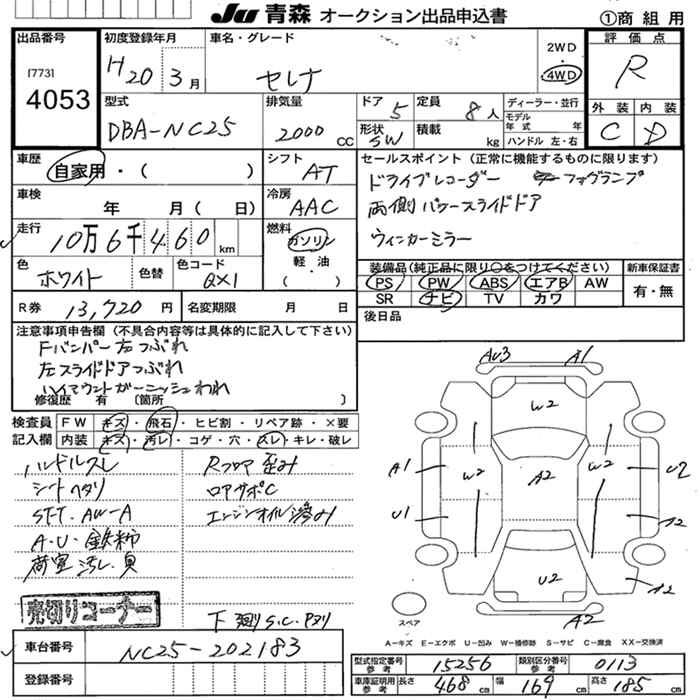 JU 青森 オークション出品申込書
①商 組 用
出品番号
[773]
4053
初度登録年月
H20 3月
車名・グレード
セレナ
2WD
・
4WD
評 価 点
R
外 装 内 装
C D
型式
DBA-NC25
排気量
2000 CC
ドア 5
形状 SW
定員 8人
積載 kg
ディーラー・並行
モデル
年 式 年
ハンドル 左・右
車歴
自家用・( )
シフト
AT
車検
年 月(日)
冷房
AAC
走行
10万6千460km
燃料
ガソリン
軽・油
( )
色
ホワイト
色替
色コード
QX1
R券 13,720円
名変期限 月 日
セールスポイント(正常に機能するものに限ります)
ドライブレコーダー フォグランプ
両側パワースライドドア
ウィンカーミラー
装備品(純正品に限り○をつけてください)
PS PW ABS エアB AW
SR ナビ TV カワ
新車保証書
有・無
後日品
注意事項申告欄(不具合内容等は具体的に記入して下さい)
Fバンパー左つぶれ
左スライドドアつぶれ
ハイマウントガーニッシュわれ
修復歴 有 〔箇所 〕
検査員
記入欄
FW キズ・飛石・ヒビ割・リペア跡・×要
内装 キズ・汚レ・コゲ・穴・スレ・キレ・破レ
ハンドルスレ
シートヘタリ
STT. AW-A
A・U・鉄柿
荷室汚レ・貝
Rフロア歪み
ロアサポC
エンジンオイル滲み
売切りコーナー
下廻りS.C.Pヌリ
車台番号
NC25-202183
登録番号
AU3 A1
W2
A1 W2 A2 W2 U2
U1 A2
U2 A2
A2
スペア
A-キズ E-エクボ U-凹み W-補修跡 S-サビ C-腐食 XX-交換済
型式指定番号
参考
15256
類別区分番号
参考
0113
車庫証明用
参考
長さ 468cm 幅 169cm 高さ 185cm